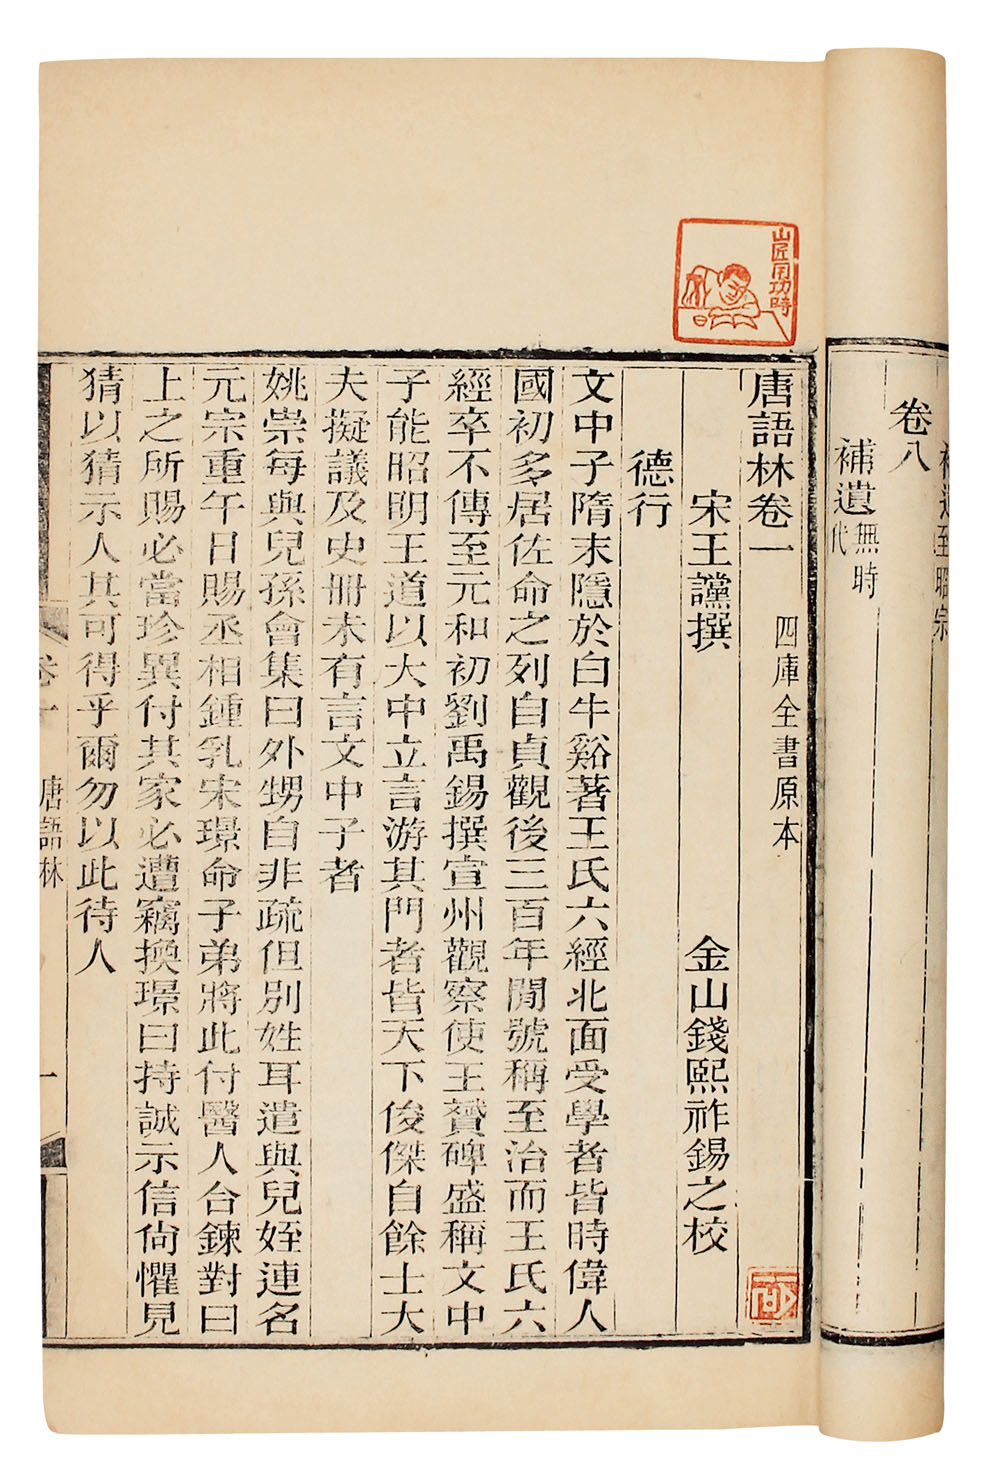 卷八
補遺無時代
唐語林卷一
四庫全書原本
宋王讜撰
金山錢熙祚錫之校
德行
文中子隋末隱於白牛谿著王氏六經北面受學者皆時偉人
國初多居佐命之列自貞觀後三百年閒號稱至治而王氏六
經卒不傳至元和初劉禹錫撰宣州觀察使王贊碑盛稱文中
子能昭明王道以大中立言游其門者皆天下俊傑自餘士大
夫擬議及史冊未有言文中子者
姚崇每與兒孫會集曰外甥自非疏但別姓耳遣與兒姪連名
元宗重午日賜丞相鍾乳宋璟命子弟將此付醫人合鍊對曰
上之所賜必當珍異付其家必遭竊換璟曰持誠示信尙懼見
猜以猜示人其可得乎爾勿以此待人
卷一
唐語林
一
山匠用功時